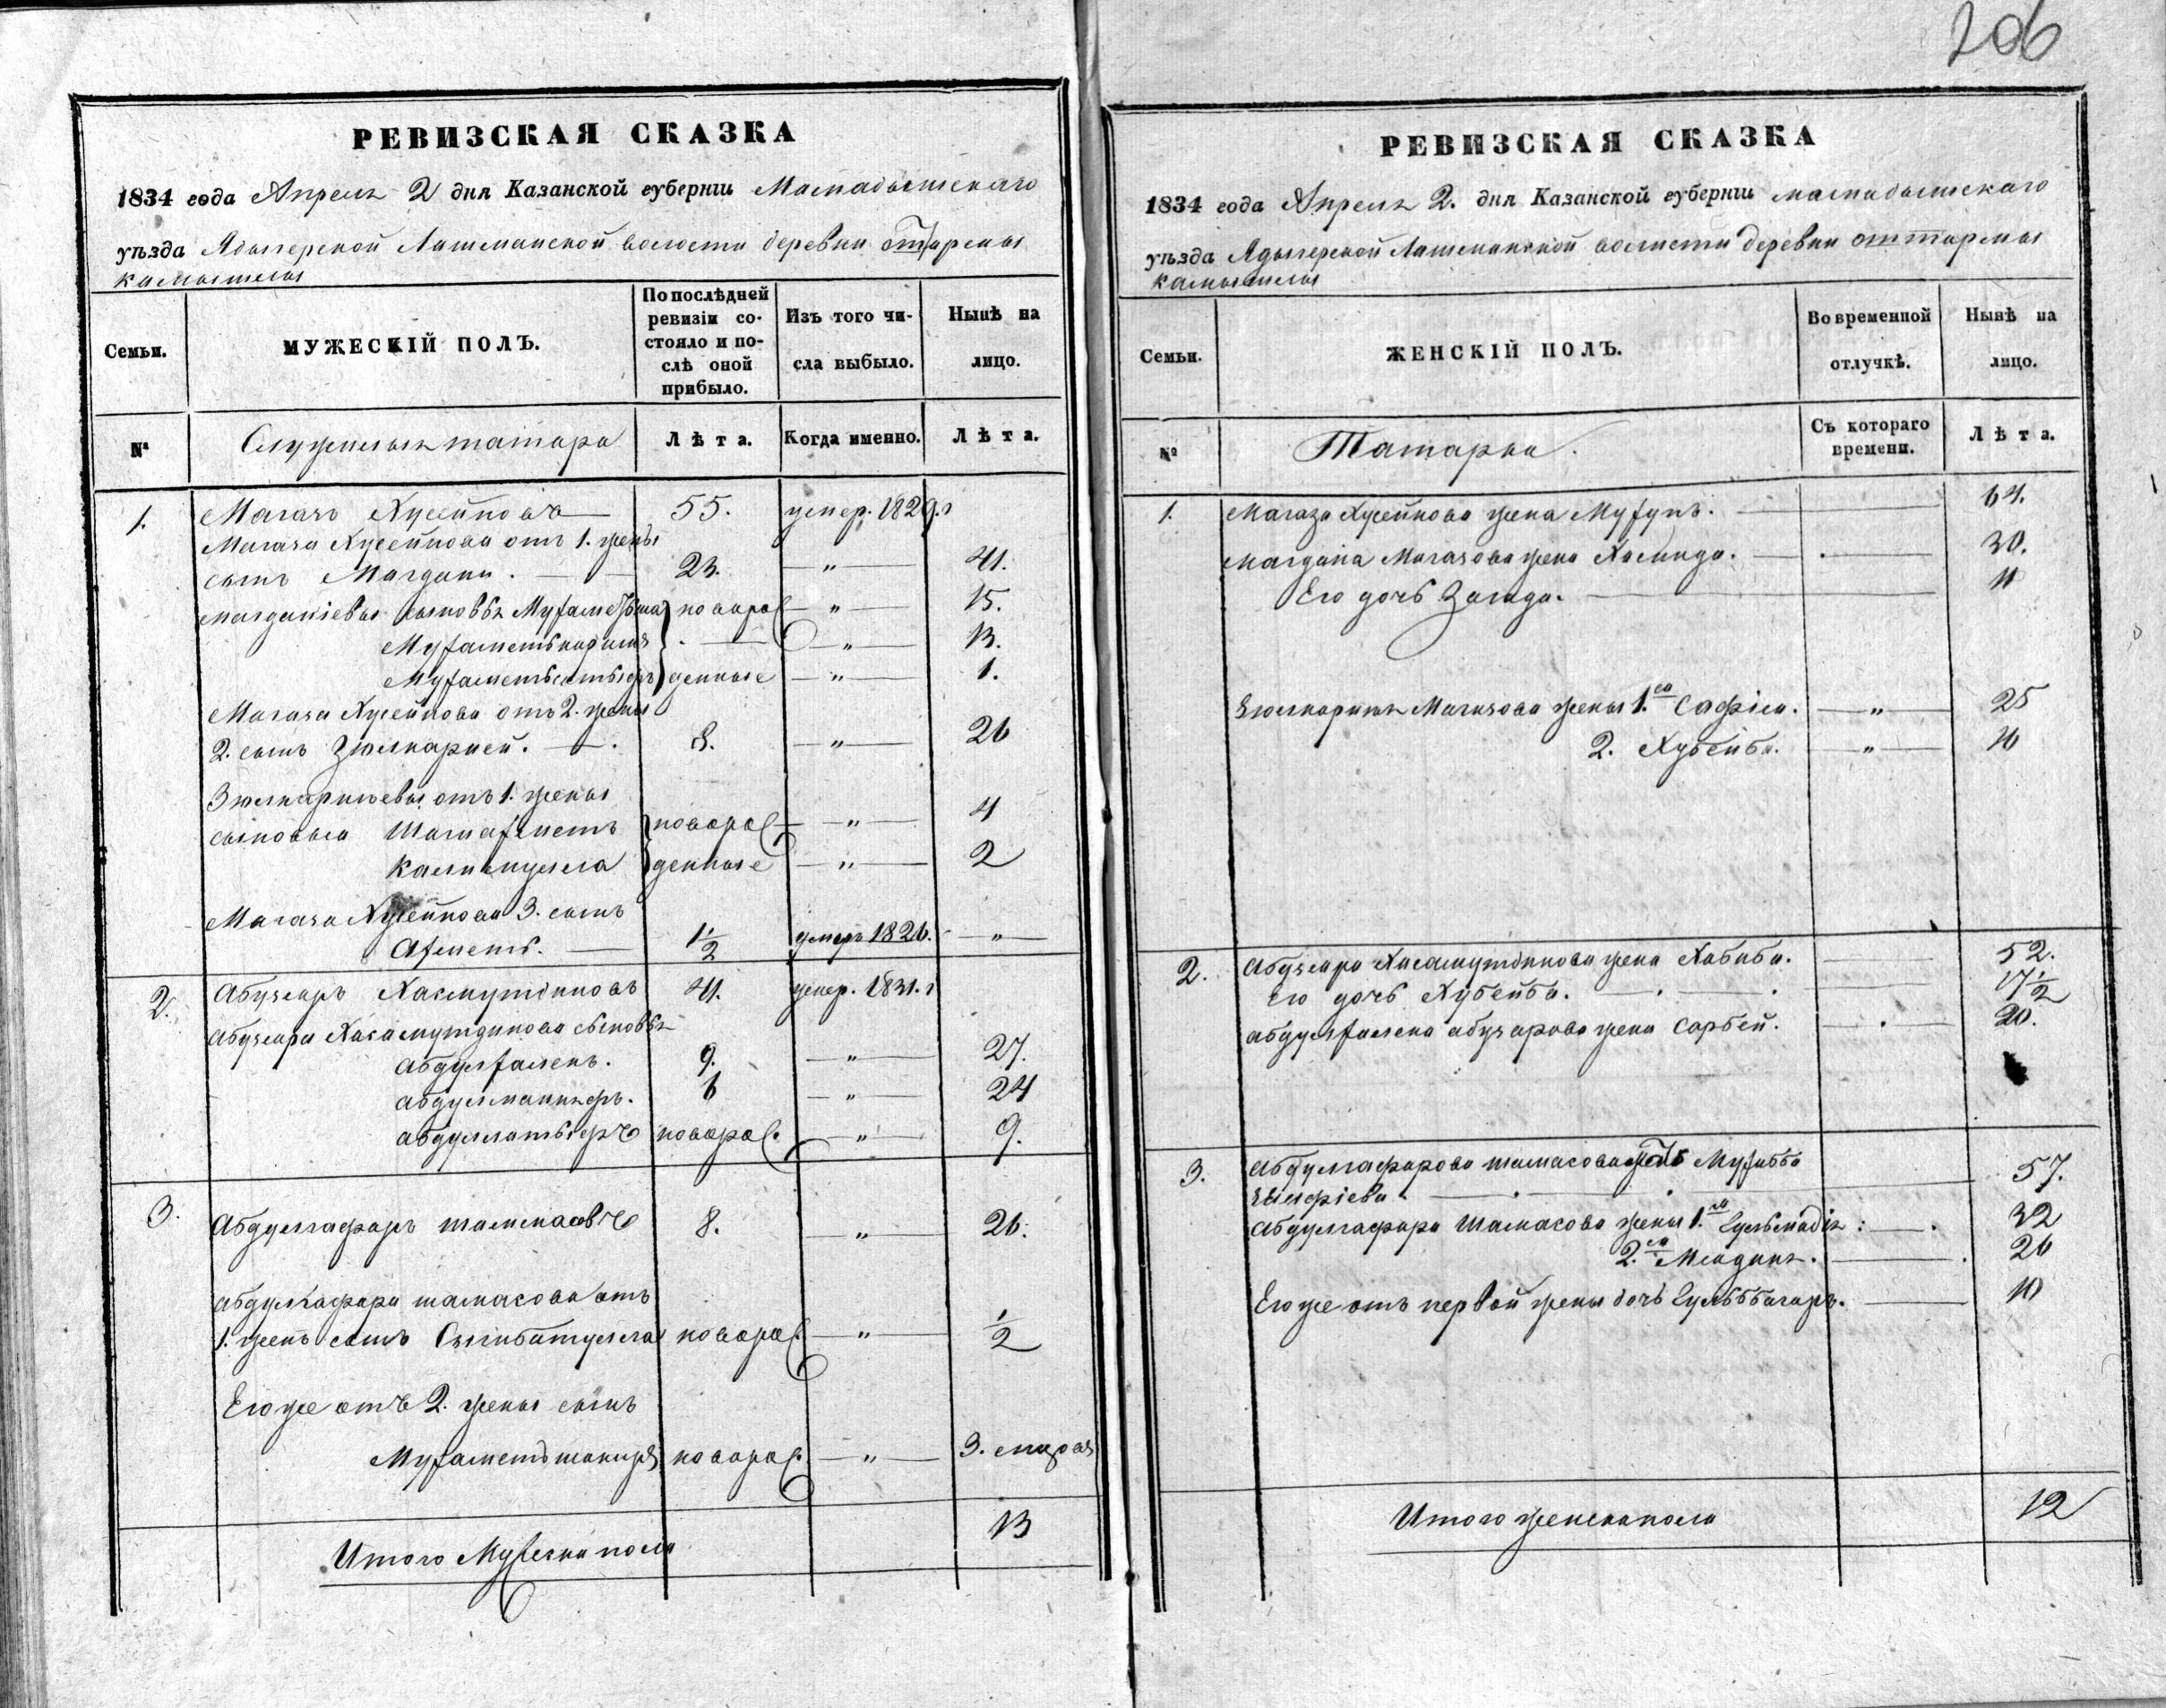 206
РЕВИЗСКАЯ СКАЗКА
1834 года Апреля 2 дня Казанской губерніи Мамадышскаго
уѣзда Адыгерской Лашманской волости деревни от тарлы
камышлы
Семьи.
МУЖЕСКІЙ ПОЛЪ.
По послѣдней ревизіи состояло и послѣ оной прибыло.
Изъ того числа выбыло.
Нынѣ на лицо.
№
Служилыя татара
Лѣта.
Когда именно.
Лѣта.
1. Магазъ Хусейновъ 55. умер. 1829.г
Магаза Хусейнова отъ 1. жены
сынъ Магдани. 23. — „ — 41.
Магданіевы сыновья новорож — „ — 15.
— „ — 13.
денные — „ — 1.
Магаза Хусейнова отъ 2. жены
2. сынъ Зюлкарней. 8. — „ — 26
Зюлкарнеевы отъ 1. жены
сыновья Шагиахметъ новорож — „ — 4
Калимулла денные — „ — 2
Магаза Хусейнова 3. сынъ
Ахметь. 1 1/2 умеръ 1826. — „ —
2. Абузяръ Хасмутдиновъ 41. умер. 1831.г
Абузяра Хасамутдинова сыновья
абдулхаликъ. 9. — „ — 27.
6 — „ — 24
новорож. — „ — 9.
3. Абдулгафаръ шамасовъ 8. — „ — 26.
абдулгафара шамасова отъ
1. жены сынъ новорож. — „ — 1/2
Его же отъ 2. жены сынъ
Мухаметшакиръ новорож. — „ — 3. мѣсяц
Итого Мужеска пола 13
РЕВИЗСКАЯ СКАЗКА
1834 года Апреля 2. дня Казанской губерніи мамадышскаго
уѣзда Адыгерской Лашманской волости деревни от тарлы
камышлы
Семьи.
ЖЕНСКІЙ ПОЛЪ.
Во временной отлучкѣ.
Нынѣ на лицо.
№
Татарки.
Съ котораго времени.
Лѣта.
1. Магаза Хусейнова жена 64.
Магдана Магазова жена Хамида. 30.
Его дочь Загида. 11
Магазова жены 1.ая Сафіа. — „ — 25
2. Хубейба. — „ — 16
2. Абузяра Хасамутдинова жена Хабиба. 52.
Его дочь Хубейба. 17 1/2
абдулхалика абузярова жена Сарбей. 20.
3. Абдулгафарова шамасова мать 57.
Абдулгафара Шамасова жены 1.ая 32
2.ая Мадина. 26
Его же отъ первой жены дочь 10
Итого женска пола 12